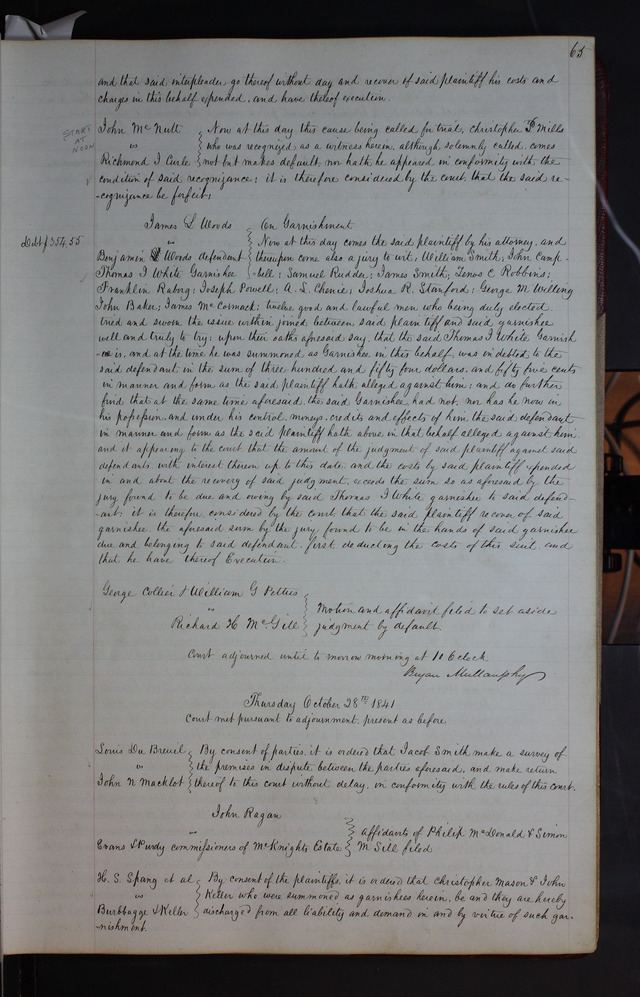 65
and that said interpleader go thereof without day and recover of said plaintiff his costs and
charges in this behalf expended, and have thereof execution.
START AT NOON
John McNutt
vs
Richmond J Curle
Now at this day this cause being called for trial, Christopher D Mills
who was recognized as a witness herein, although solemnly called, comes
not but makes default, nor hath he appeared in conformity with the
condition of said recognizance; it is therefore considered by the court that the said re-
-cognizance be forfeit;
Debt $354.55
James L Woods
vs
Benjamin Woods defendant
Thomas J White Garnishee
On Garnishment
Now at this day comes the said plaintiff by his attorney, and
thereupon come also a jury to wit; William Smith; John Camp-
-bell; Samuel Rudder; James Smith; Zenos C Robbins;
Franklin Raborg; Joseph Powell; A. L. Chenie; Joshua R. Stanford; George M Willing
John Baker; James McCormack; twelve good and lawful men who being duly elected
tried and sworn the issue within joined between said plaintiff and said garnishee
well and truly to try; upon their oaths aforesaid say, that the said Thomas J White Garnish
-ee is, and at the time he was summoned as Garnishee in this behalf was indebted to the
said defendant in the sum of three hundred and fifty four dollars, and fifty five cents
in manner and form as the said plaintiff hath alleged against him; and do further
find that at the same time aforesaid the said Garnishee had not, nor has he now in
his possession and under his control, moneys, credits and effects of him the said defendant
in manner and form as the said plaintiff hath above in that behalf alleged against him
and it appearing to the court that the amount of the judgment of said plaintiff against said
defendants, with interest thereon up to this date and the costs by said plaintiff expended
in and about the recovery of said judgment, exceeds the sum so as aforesaid by the
jury found to be due and owing by said Thomas J White garnishee to said defend-
-ant; it is therefore considered by the court that the said plaintiff recover of said
garnishee, the aforesaid sum by the jury found to be in the hands of said garnishee
due and belonging to said defendant, first deducting the costs of this suit, and
that he have thereof Execution.
George Collier & William G Pettus
vs
Richard H McGill
Motion and affidavit filed to set aside
judgment by default.
Court adjourned until to morrow morning at 10 OClock
Bryan Mullanphy
Thursday October 28th 1841
Court met pursuant to adjournment, present as before
Louis Du Breuil
vs
John N Macklot
By consent of parties, it is ordered that Jacob Smith make a survey of
the premises in dispute between the parties aforesaid, and make return
thereof to this court without delay, in conformity with the rules of this court.
John Ragan
vs
Evans & Purdy commissioners of McKnights Estate
affidavits of Philip McDonald & Simon
M Sill filed
H. S. Spang et al
vs
Burbbagge & Keller
By consent of the plaintiffs, it is ordered that Christopher Mason & John
Keller who were summoned as garnishees herein, be and they are hereby
discharged from all liability and demand in and by virtue of such gar-
-nishment.